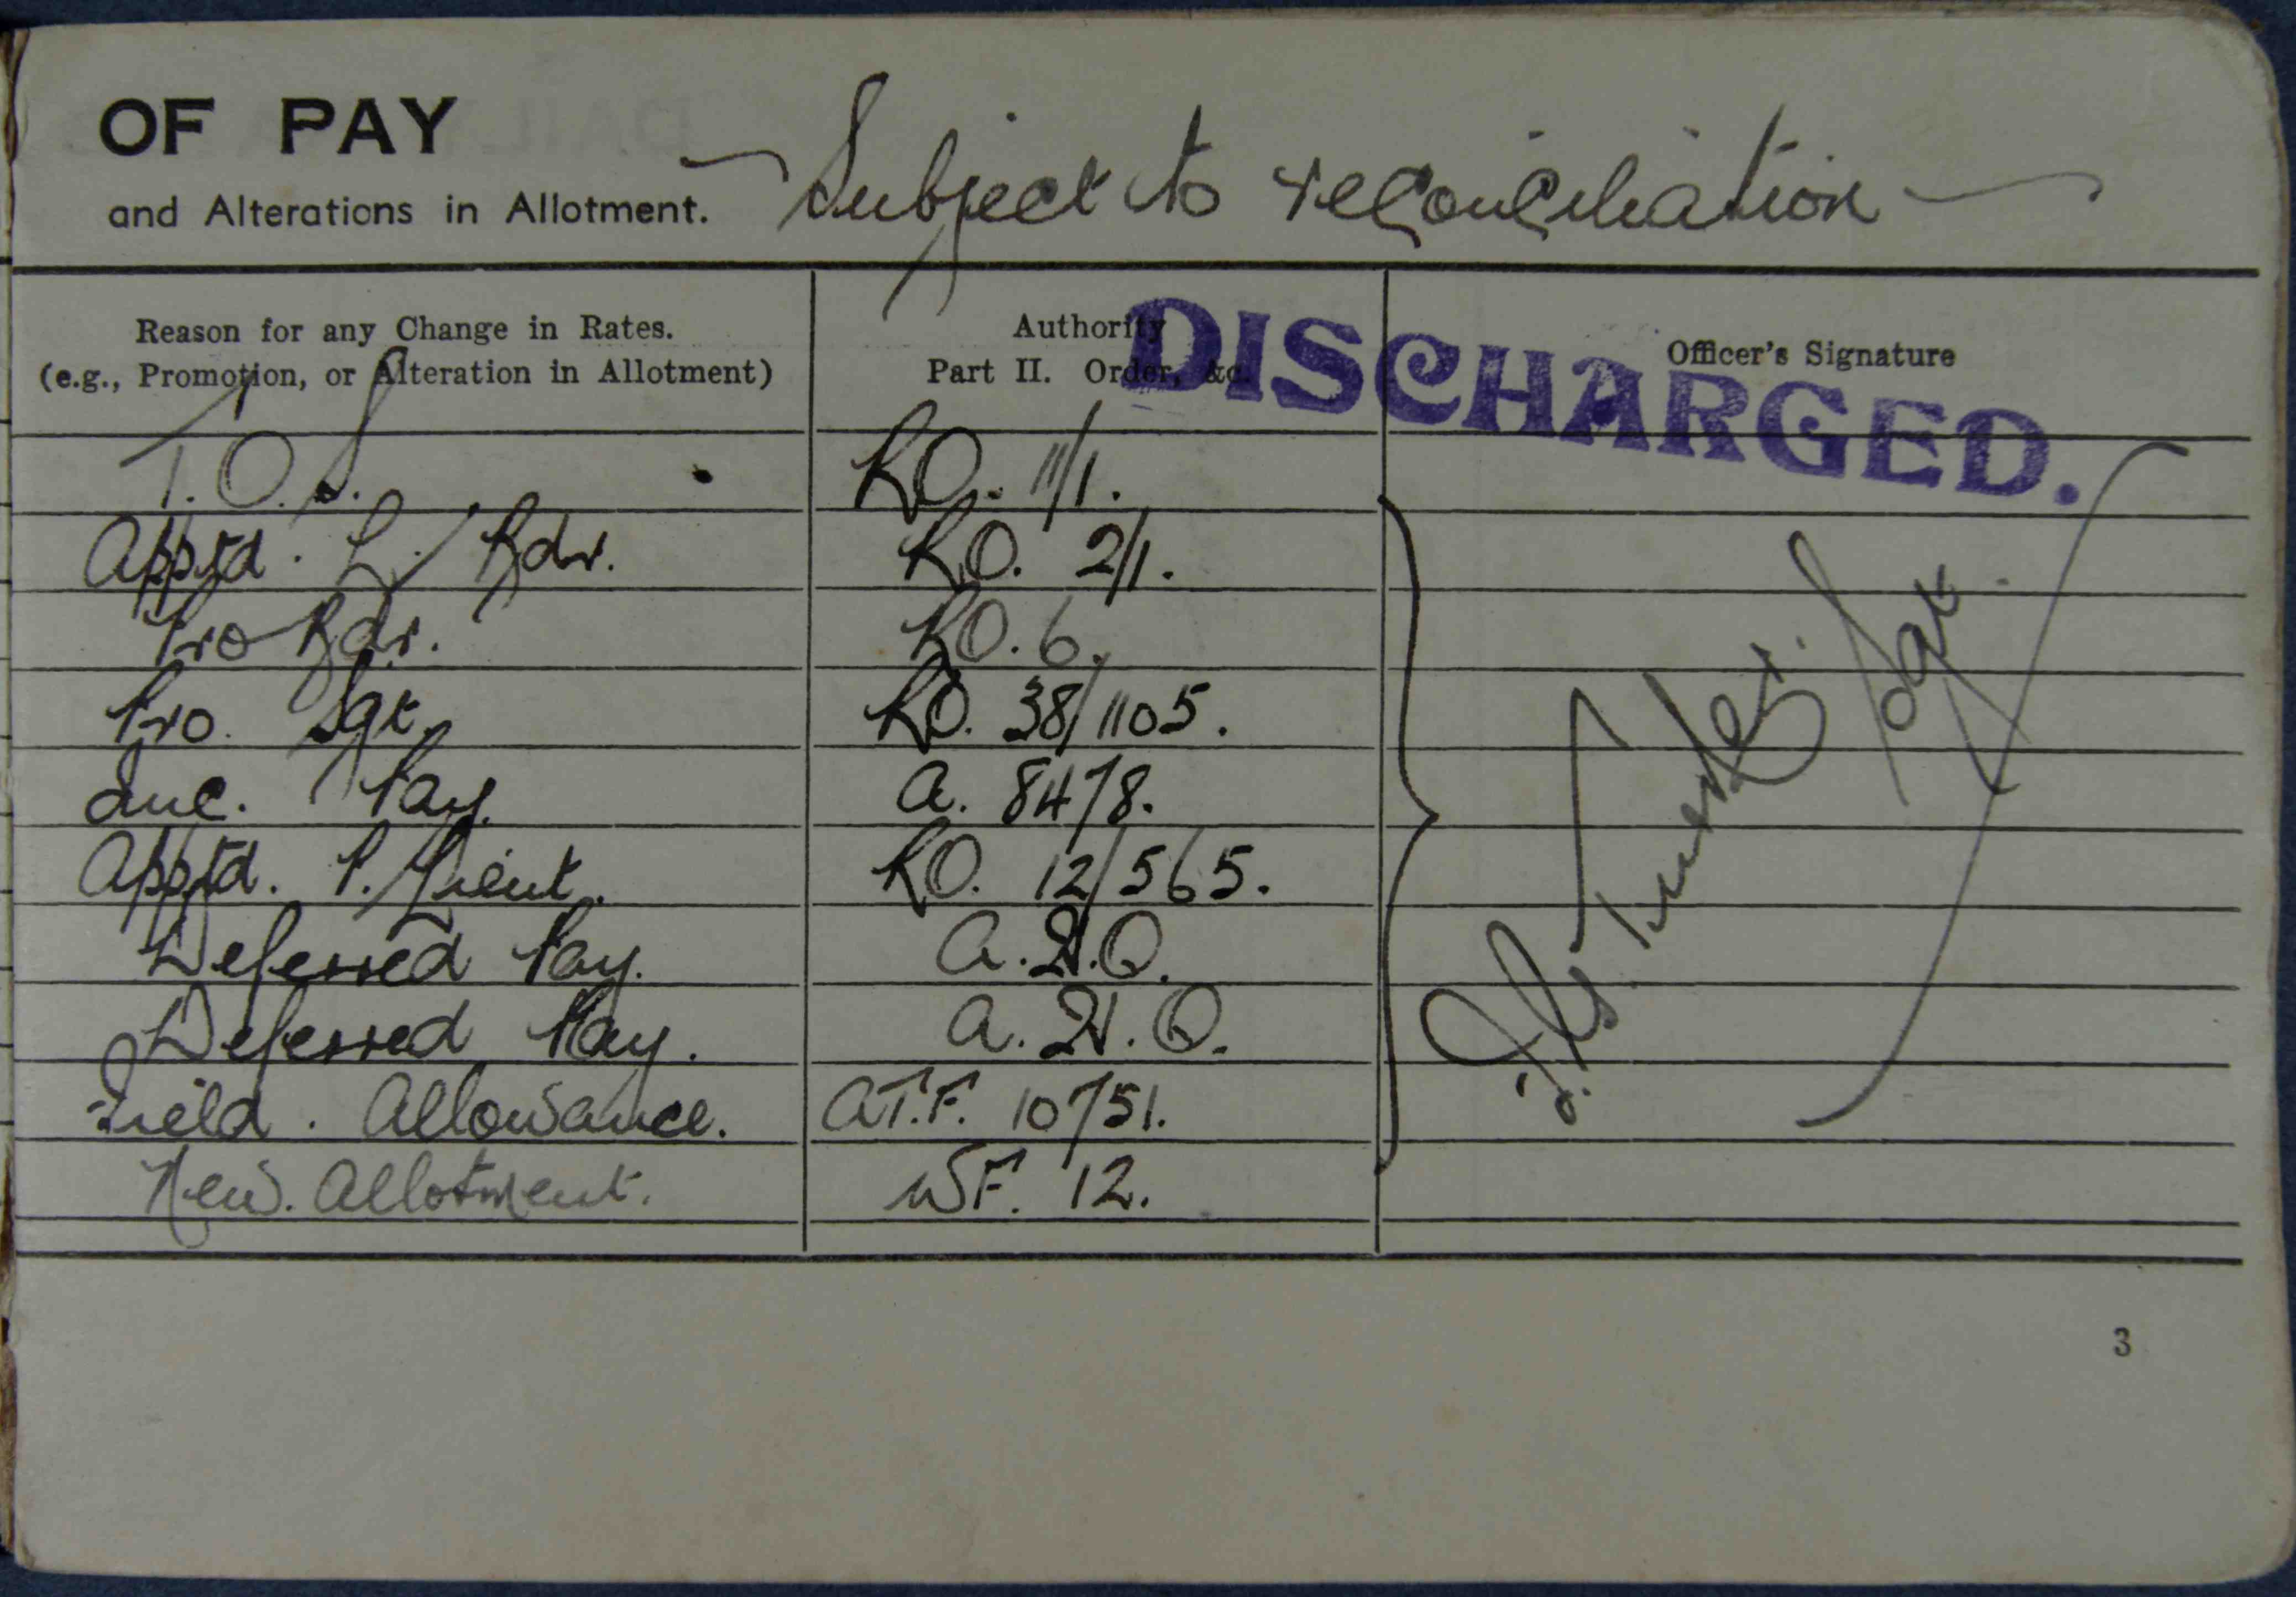 OF PAY
and Alterations in Allotment. Subject to reconciliation
Reason for any Change in Rates. Authority Officer's Signature
(e.g., Promotion, or Alteration in Allotment) Part II. Order, &c.
DISCHARGED.
T.O.S. RO. 11/1.
Apptd. L/Bdr. RO. 2/1.
Pro Bdr. RO. 6.
Pro. Sgt. RO. 38/1105.
Inc. Pay. A. 8478.
Apptd. P. Lieut. RO. 12/565.
Deferred Pay. A.H.Q.
Deferred Pay. A.H.Q.
Field. Allowance. AT.F. 10751.
New. Allotment. WF. 12.
Sgt.
3